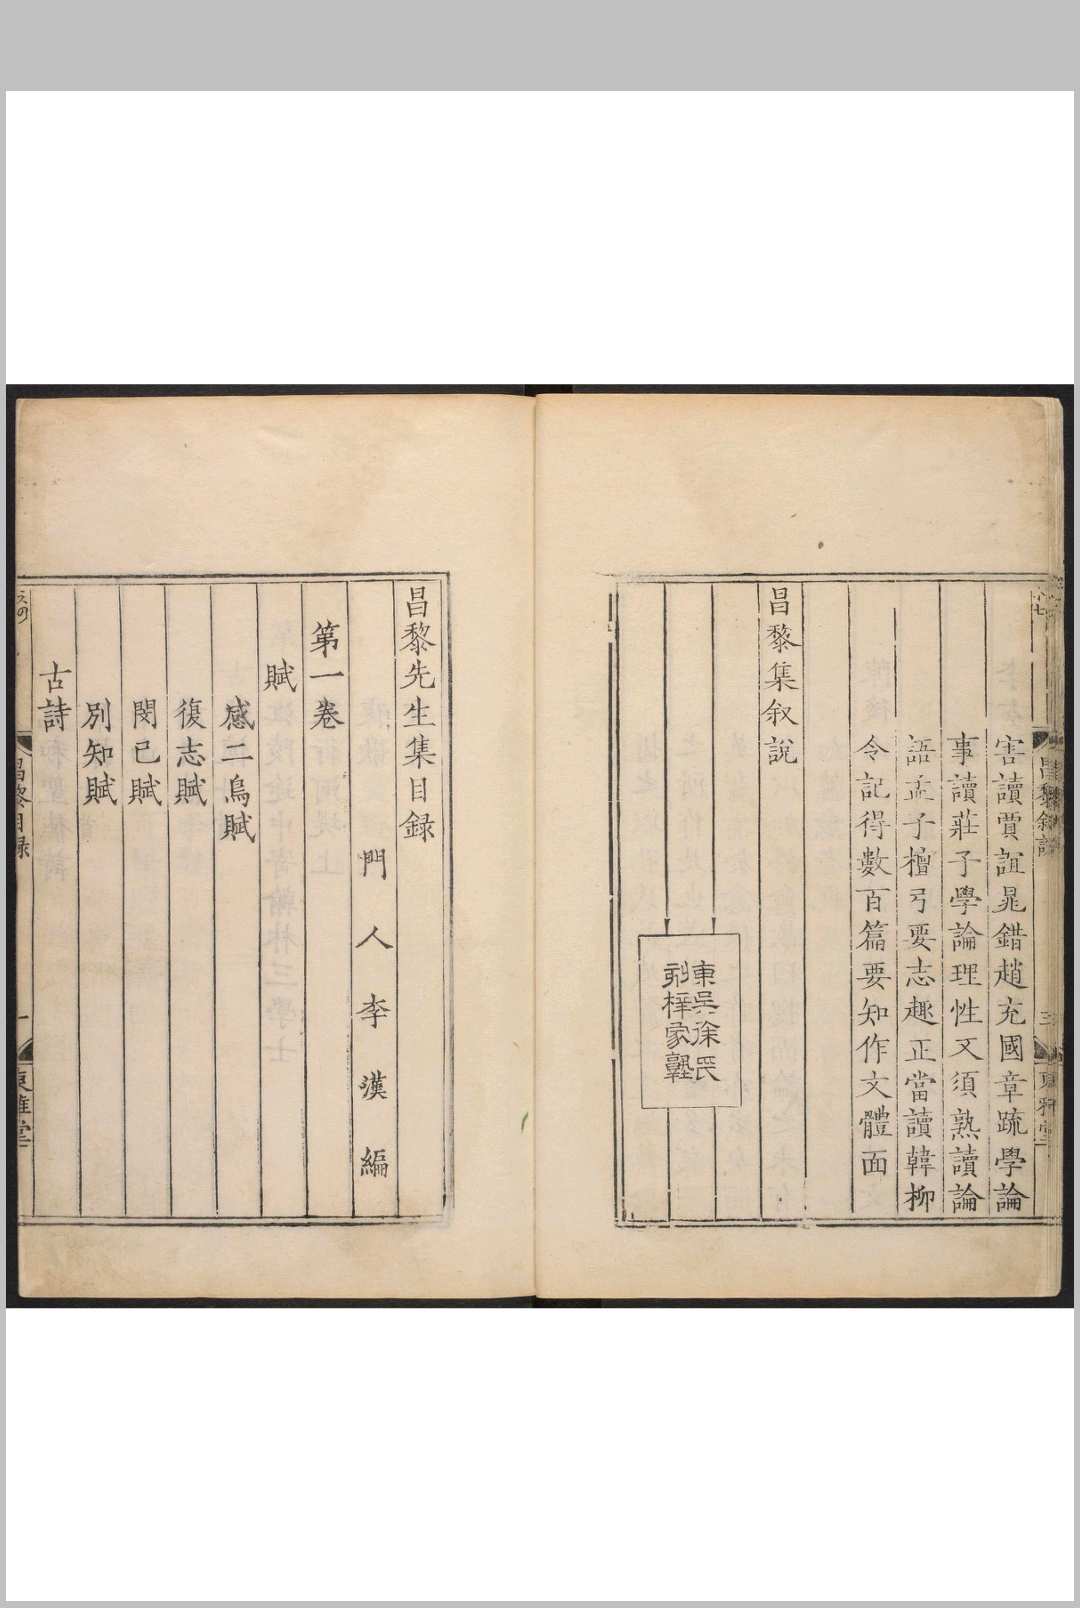 害讀賈誼鼂錯趙充國章疏學論
事讀莊子學論理性又須熟讀論
語孟子檀弓要志趣正當讀韓柳
令記得數百篇要知作文體面
昌黎集叙說
東吳徐氏
刻梓家塾
昌黎叙說
三
東雅堂
昌黎先生集目録
門人李漢編
第一卷
賦
感二鳥賦
復志賦
閔己賦
別知賦
古詩
昌黎目録
一
東雅堂